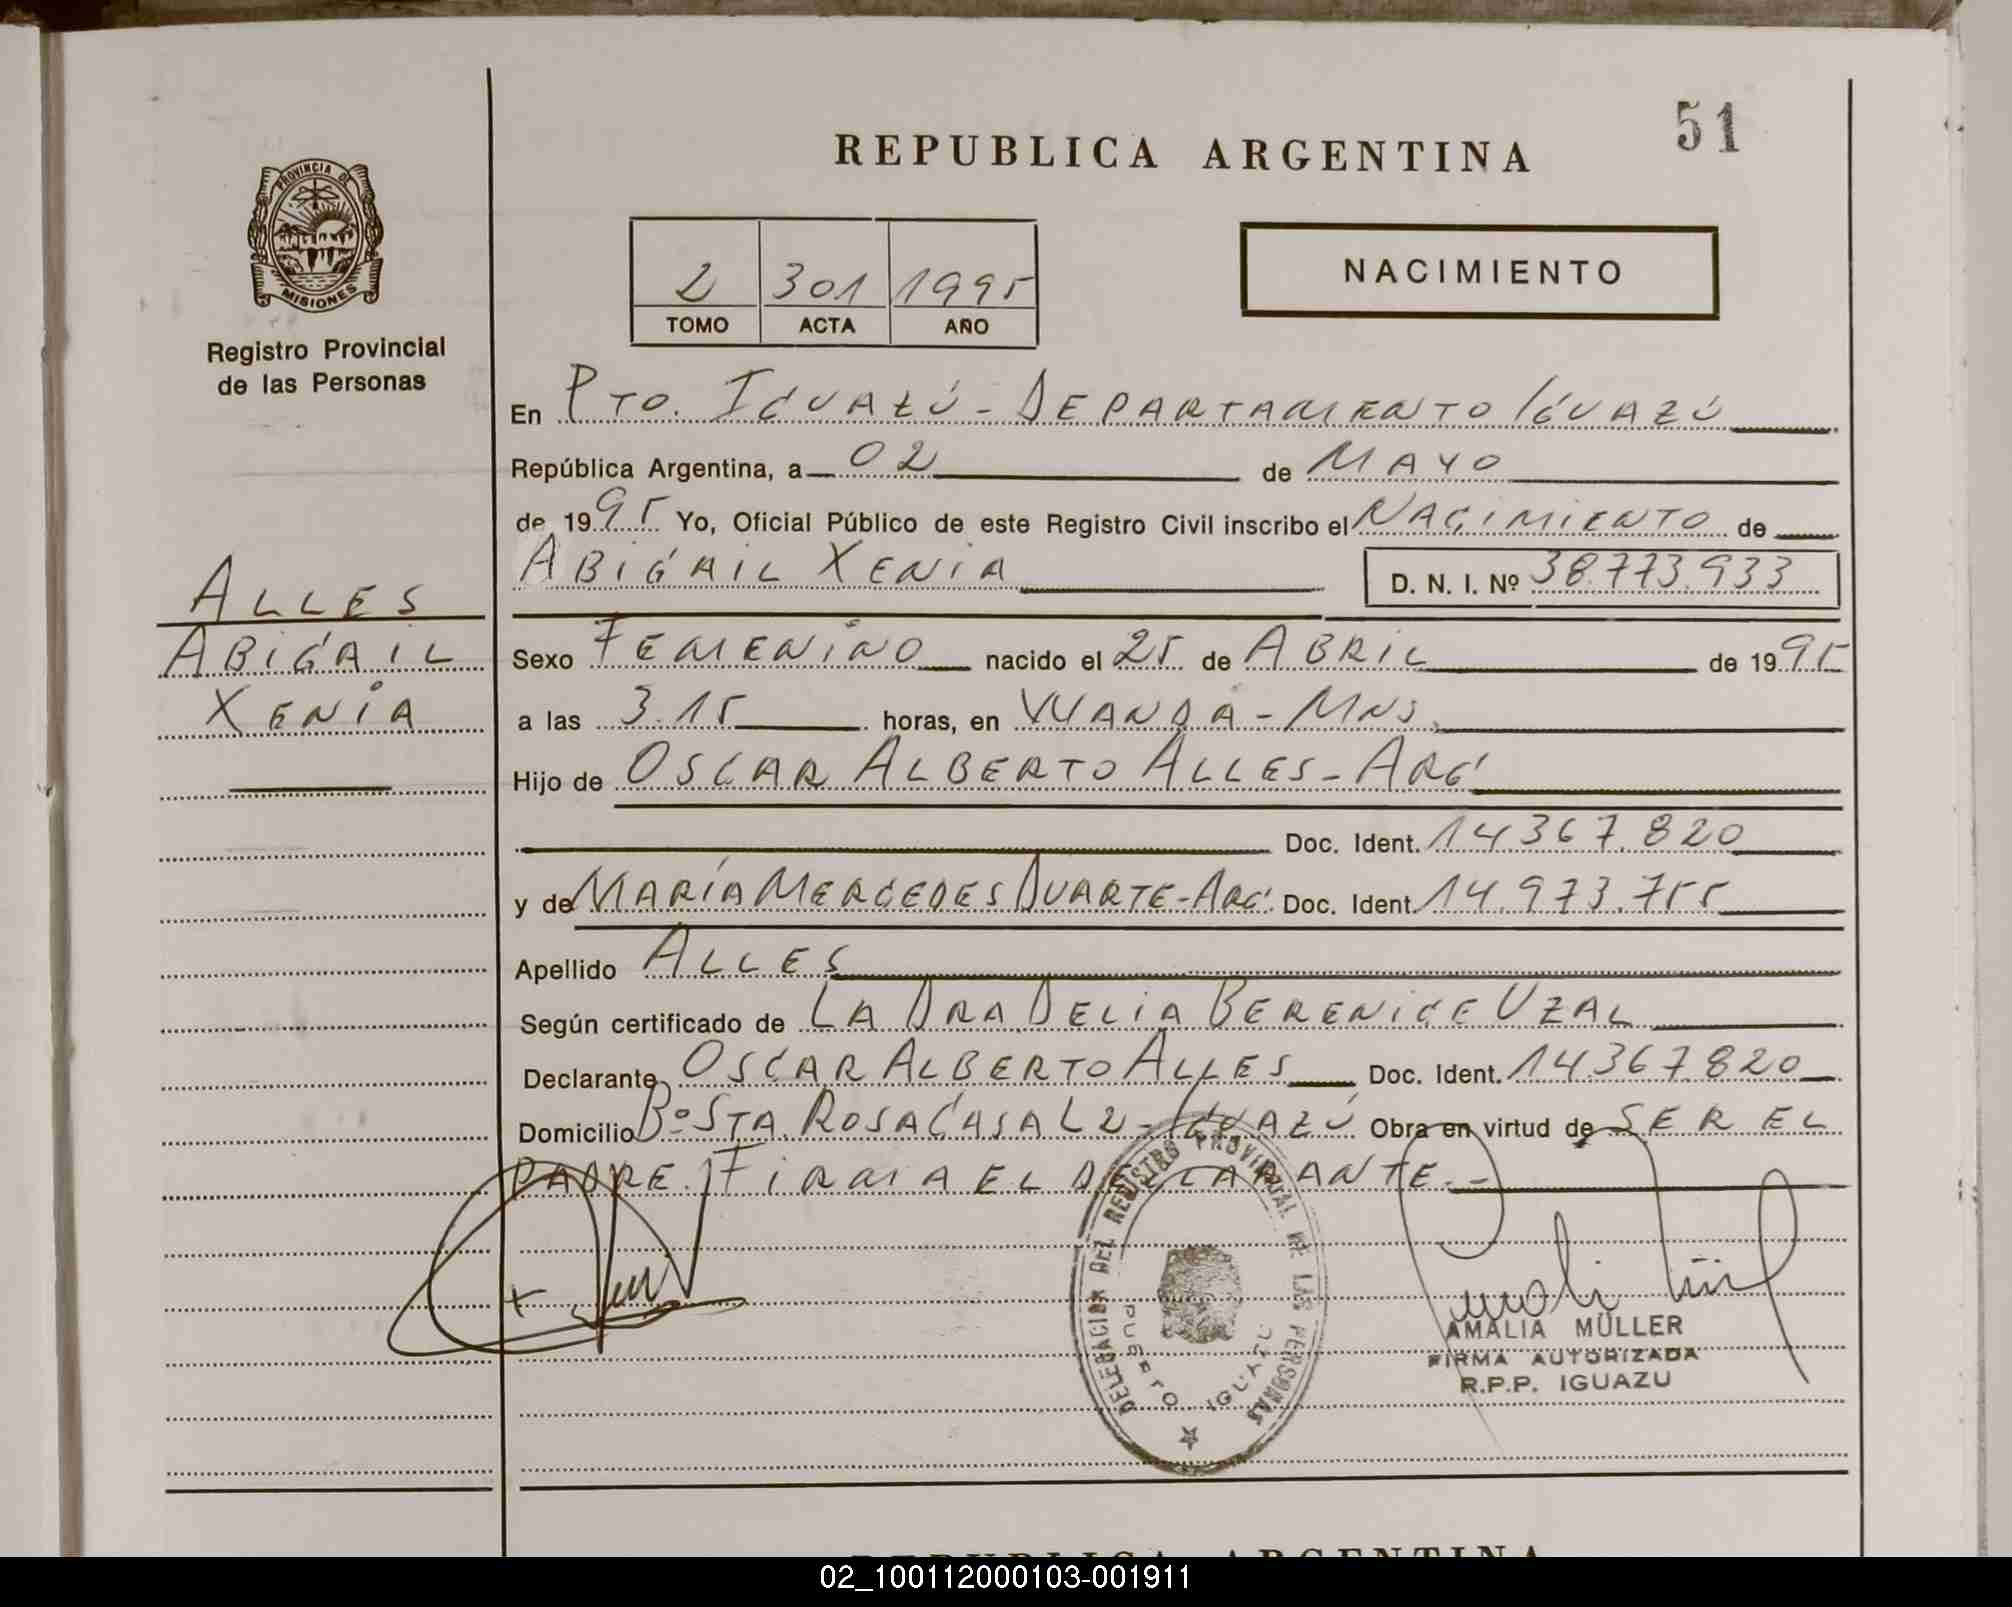 51
REPUBLICA ARGENTINA
PROVINCIA DE
MISIONES
Registro Provincial
de las Personas
2 301 1995
TOMO ACTA AÑO
NACIMIENTO
En PTO. IGUAZÚ - DEPARTAMENTO IGUAZÚ
República Argentina, a 02 de MAYO
de 1995 Yo, Oficial Público de este Registro Civil inscribo el NACIMIENTO de
ABIGAIL XENIA D. N. I. Nº 38.773.933
ALLES
ABIGAIL
XENIA
Sexo FEMENINO nacido el 25 de ABRIL de 1995
a las 3.15 horas, en WANDA - MNS.
Hijo de OSCAR ALBERTO ALLES - ARG.
Doc. Ident. 14.367.820
y de MARÍA MERCEDES DUARTE - ARG. Doc. Ident. 14.973.755
Apellido ALLES
Según certificado de LA DRA DELIA BERENICE UZAL
Declarante OSCAR ALBERTO ALLES Doc. Ident. 14.367.820
Domicilio Bº STA. ROSA CASA L2 - IGUAZÚ Obra en virtud de SER EL
PADRE. FIRMA EL DECLARANTE. -
DELEGACION DEL REGISTRO PROVINCIAL DE LAS PERSONAS
PUERTO IGUAZU
AMALIA MÜLLER
FIRMA AUTORIZADA
R.P.P. IGUAZU
REPUBLICA ARGENTINA
02_100112000103-001911